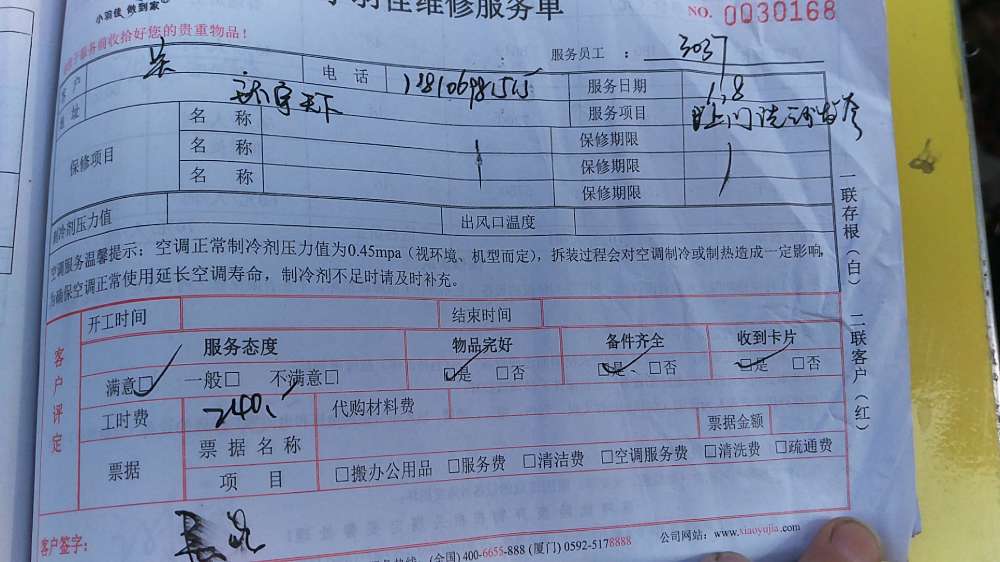 小羽佳 做到家
佳维修服务单
NO. 0030168
服务前收拾好您的贵重物品！
服务员工 ： 3037
户 吴 电 话 服务日期 1.8
址 名 称 服务项目
保修项目 名 称 保修期限
名 称 保修期限
保修期限
制冷剂压力值 出风口温度
空调服务温馨提示：空调正常制冷剂压力值为0.45mpa（视环境、机型而定），拆装过程会对空调制冷或制热造成一定影响，
为确保空调正常使用延长空调寿命，制冷剂不足时请及时补充。
一联存根（白） 二联客户（红）
客户评定
开工时间 结束时间
服务态度 物品完好 备件齐全 收到卡片
满意□ 一般□ 不满意□ □是 □否 □是、□否 □是 □否
工时费 240. 代购材料费
票据 票据名称 票据金额
项 目 □搬办公用品 □服务费 □清洁费 □空调服务费 □清洗费 □疏通费
客户签字：
服务热线：(全国) 400-6655-888 (厦门) 0592-5178888 公司网站：www.xiaoyujia.com